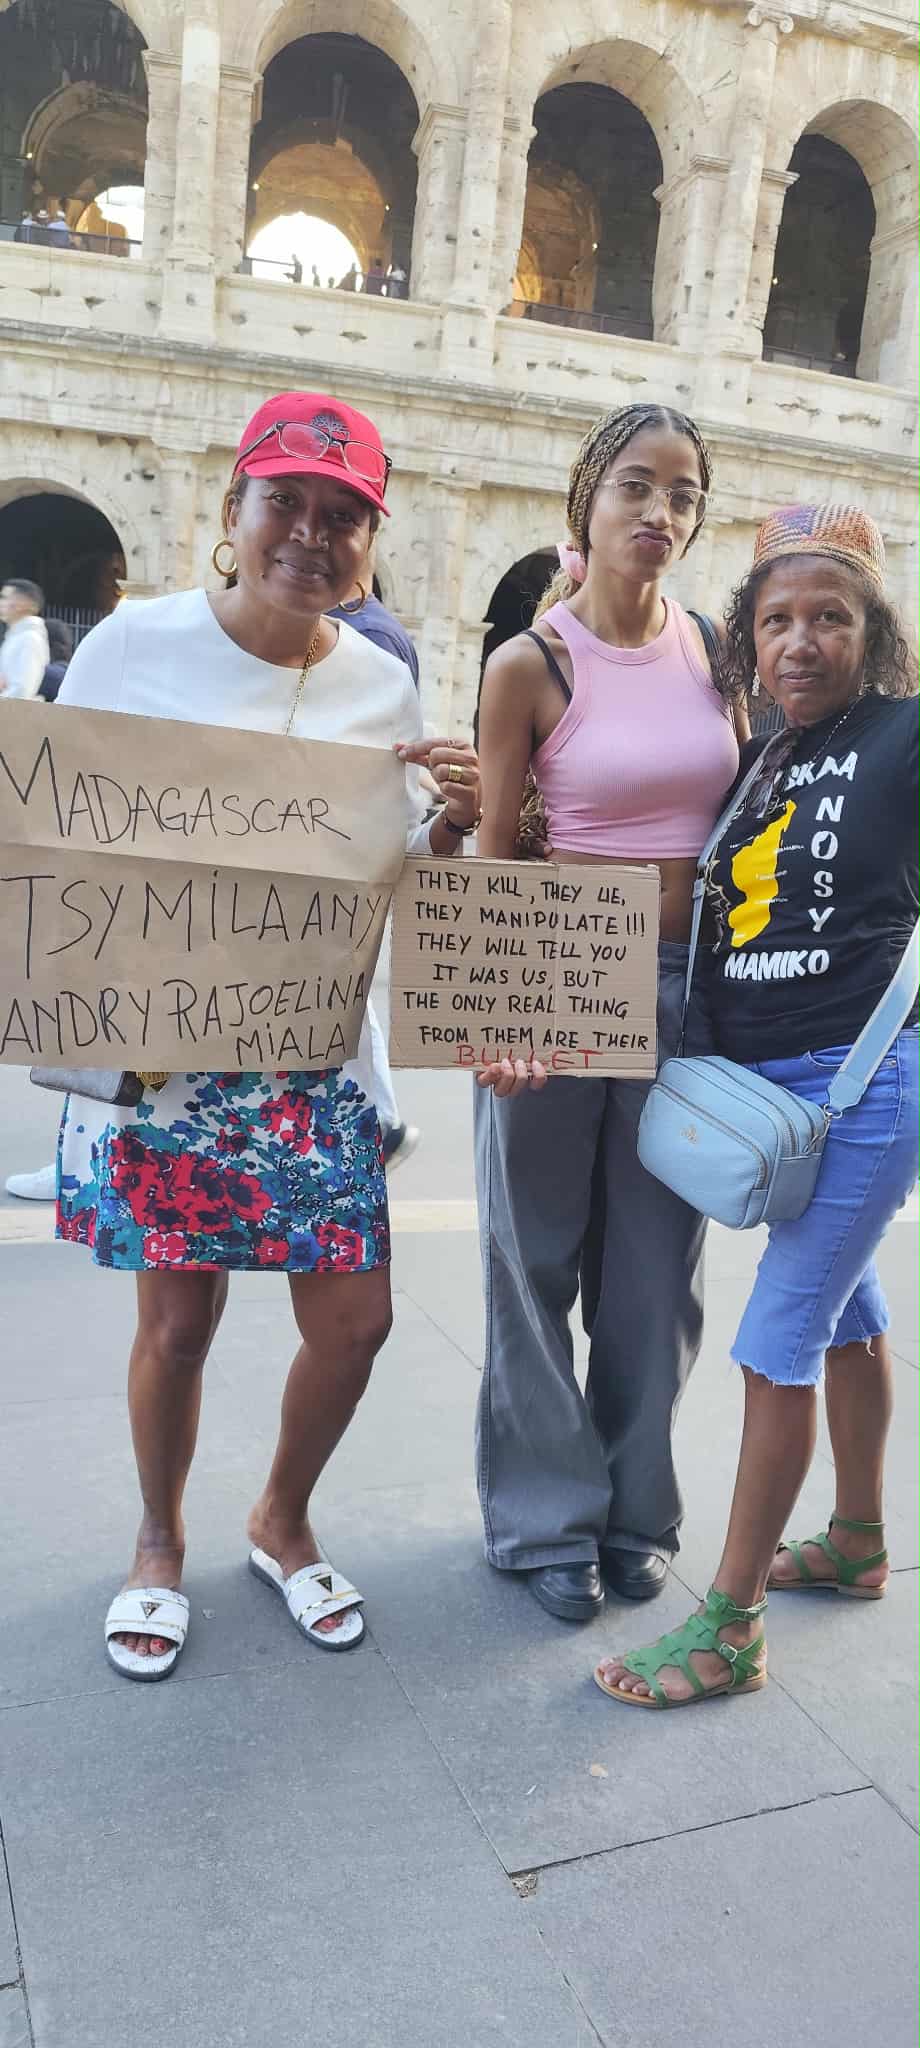 MADAGASCAR
TSY MILA ANY
ANDRY RAJOELINA
MIALA
THEY KILL, THEY LIE,
THEY MANIPULATE!!!
THEY WILL TELL YOU
IT WAS US, BUT
THE ONLY REAL THING
FROM THEM ARE THEIR
BULLET
NOSY
MAMIKO